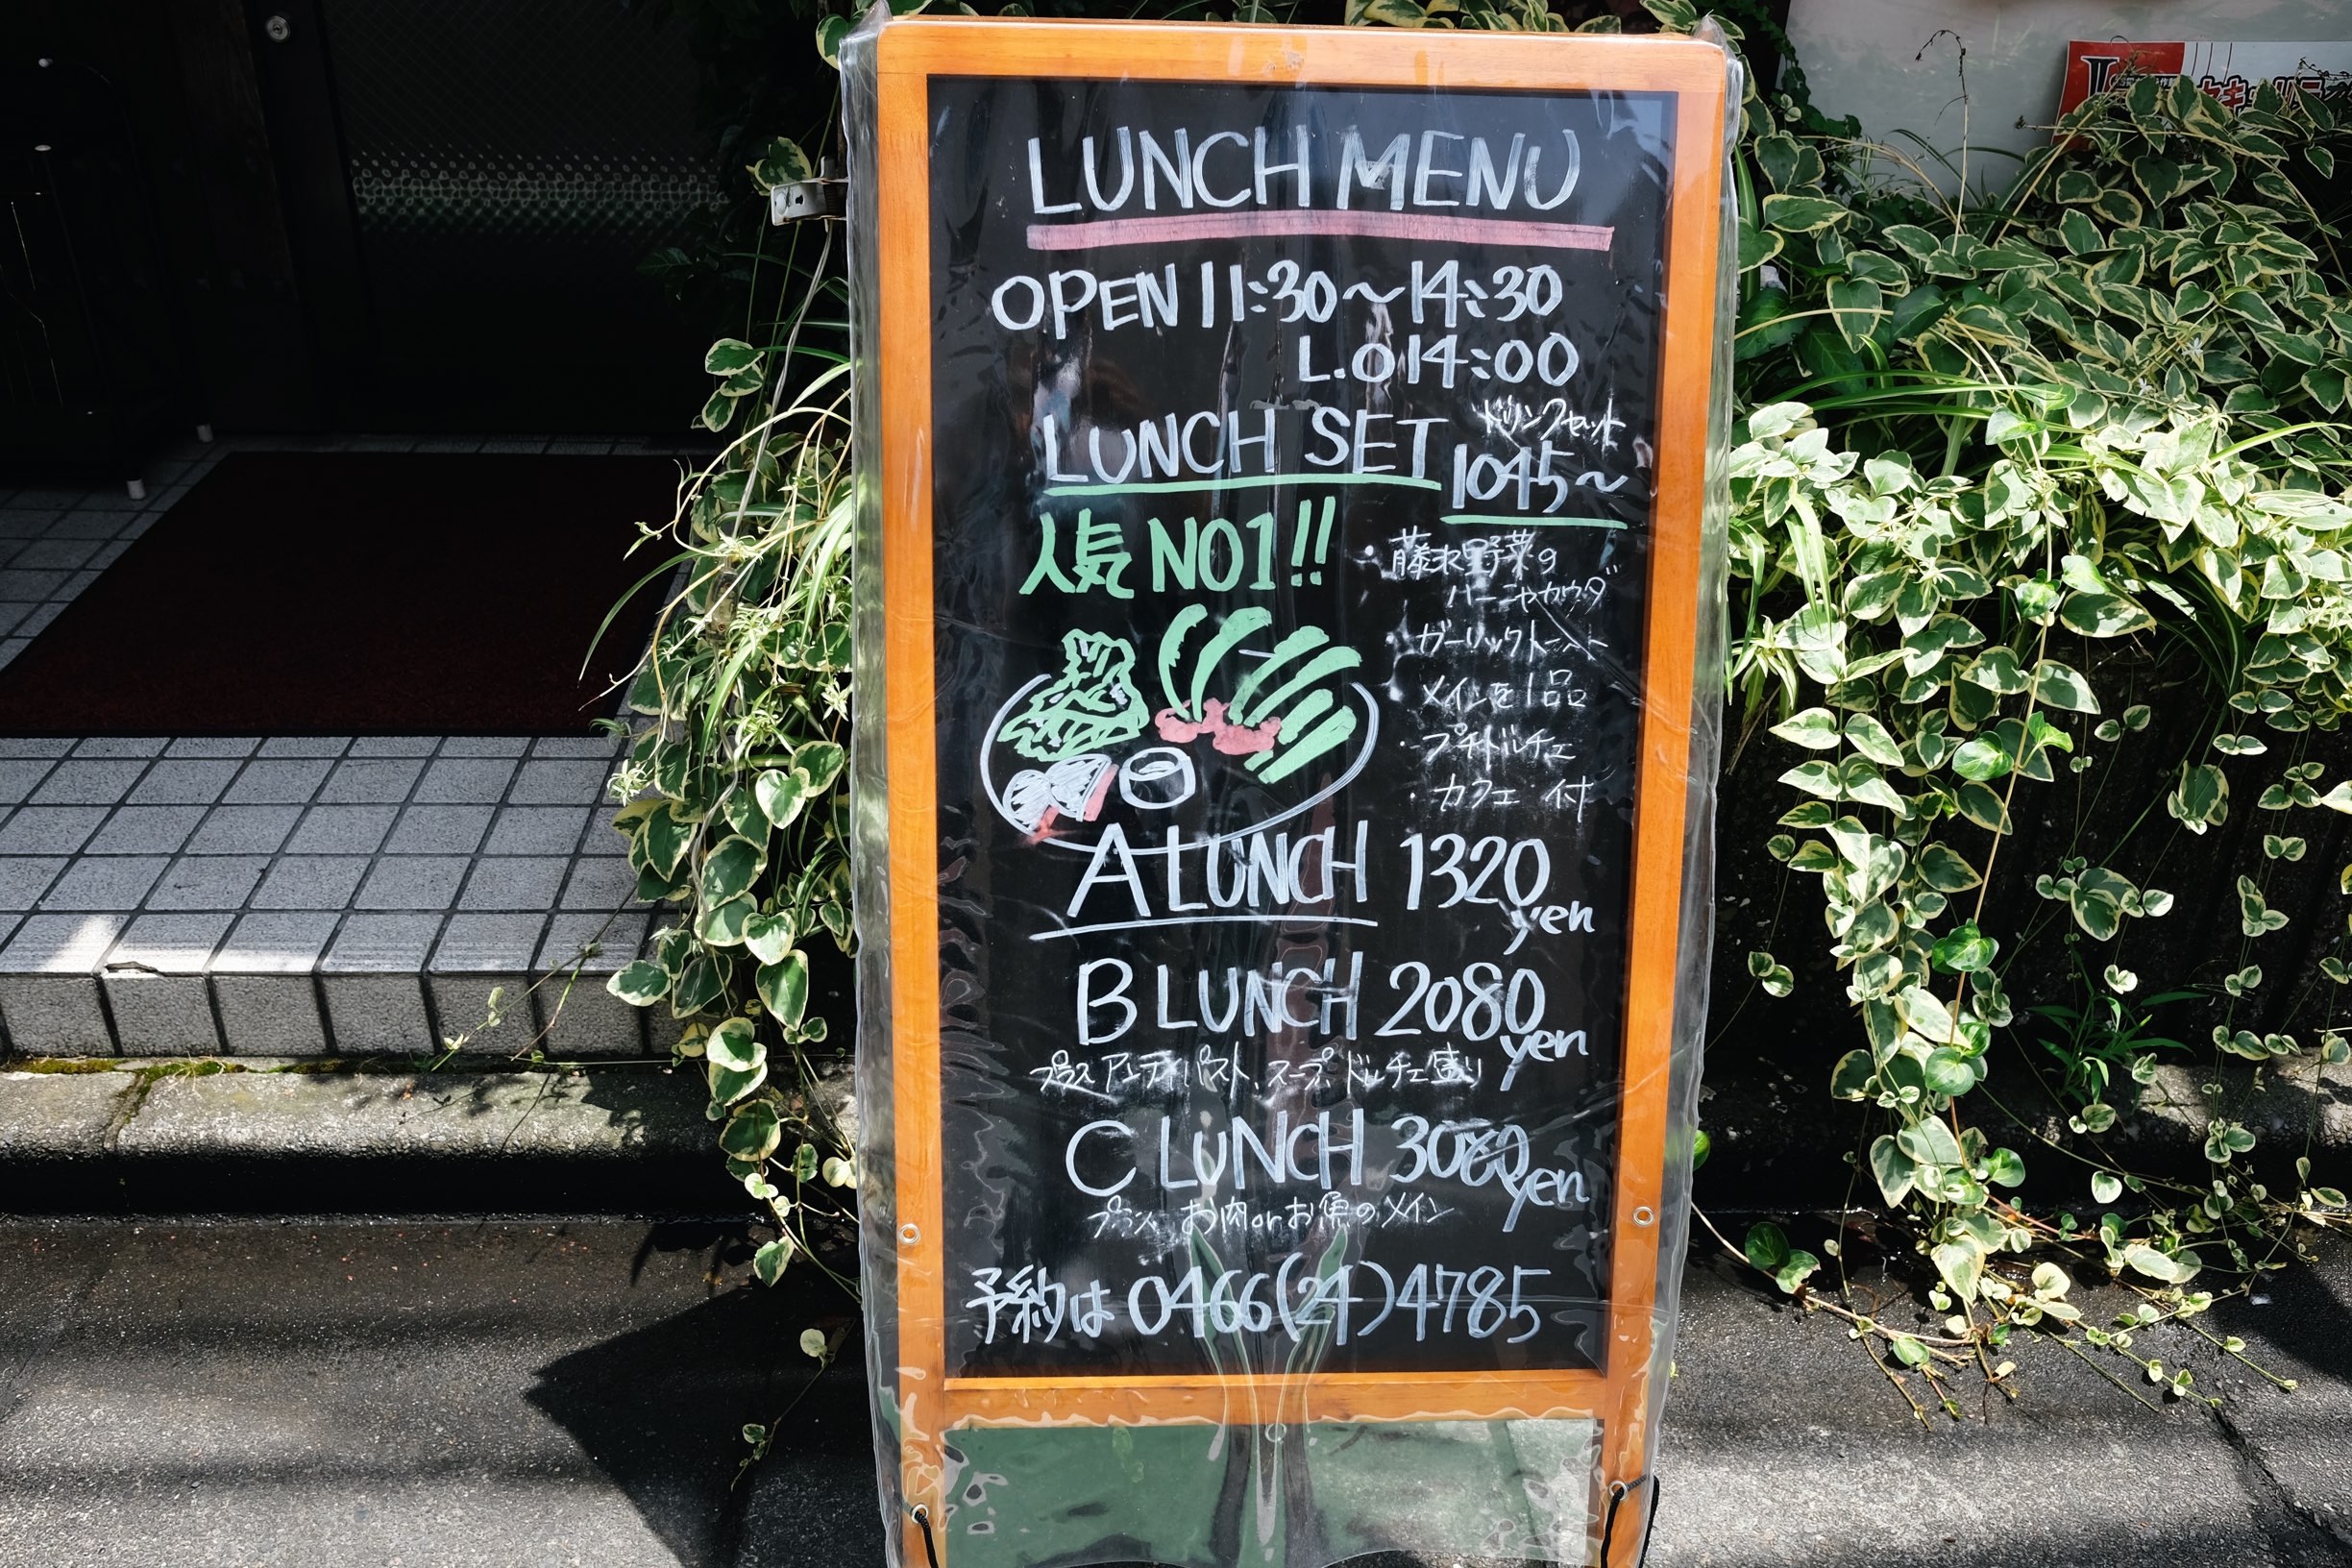 LUNCH MENU
OPEN 11:30～14:30
L.O 14:00
LUNCH SET
ドリンクセット
1045～
人気 NO1!!
・藤沢野菜の
バーニャカウダ
・ガーリックトースト
・メインを1品
・プチドルチェ
・カフェ 付
A LUNCH 1320yen
B LUNCH 2080yen
プラス アンティパスト、スープ、ドルチェ盛り
C LUNCH 3080yen
プラス お肉orお魚のメイン
予約は 0466(24)4785